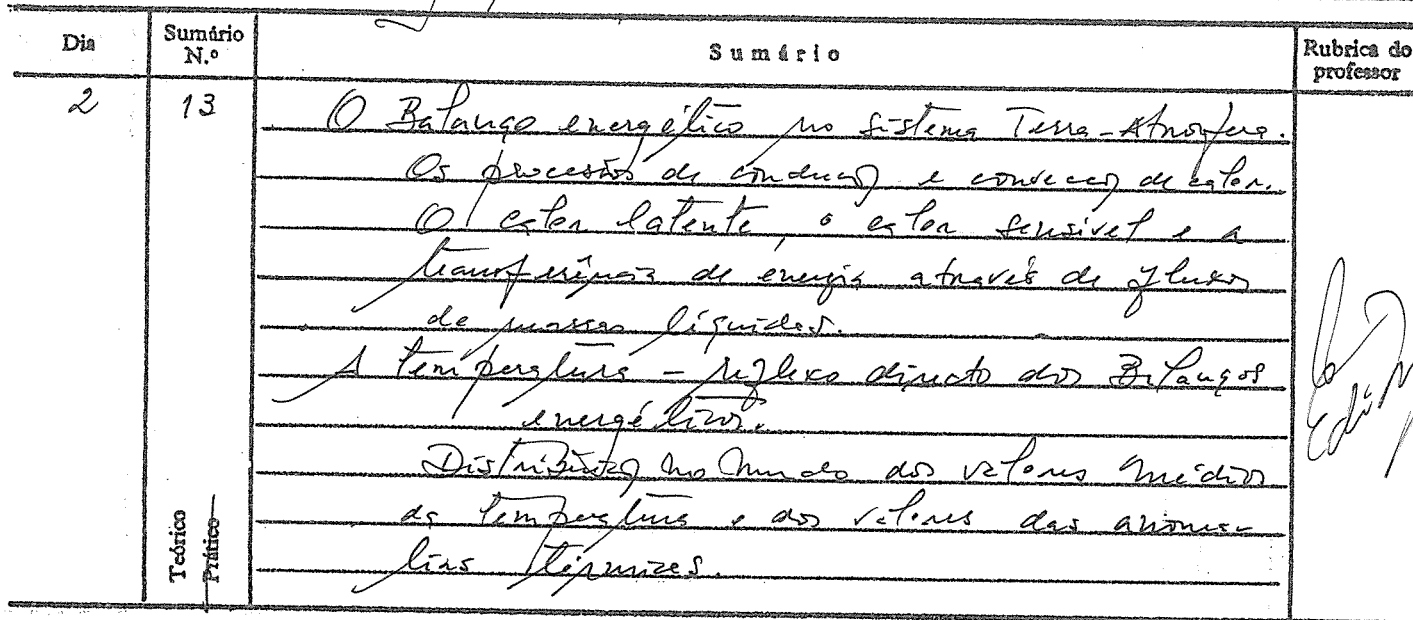 Dia Sumário N.º Sumário Rubrica do professor
2 13 O Balanço energético no sistema Terra-Atmosfera.
Os processos de condução e convecção de calor.
O calor latente, o calor sensível e a
transferência de energia através de fluxos
de massas líquidas.
A temperatura - reflexo directo dos Balanços
energéticos.
Distribuição no mundo dos valores médios
da temperatura e dos valores das anoma-
lias térmicas.
Teórico
Prático